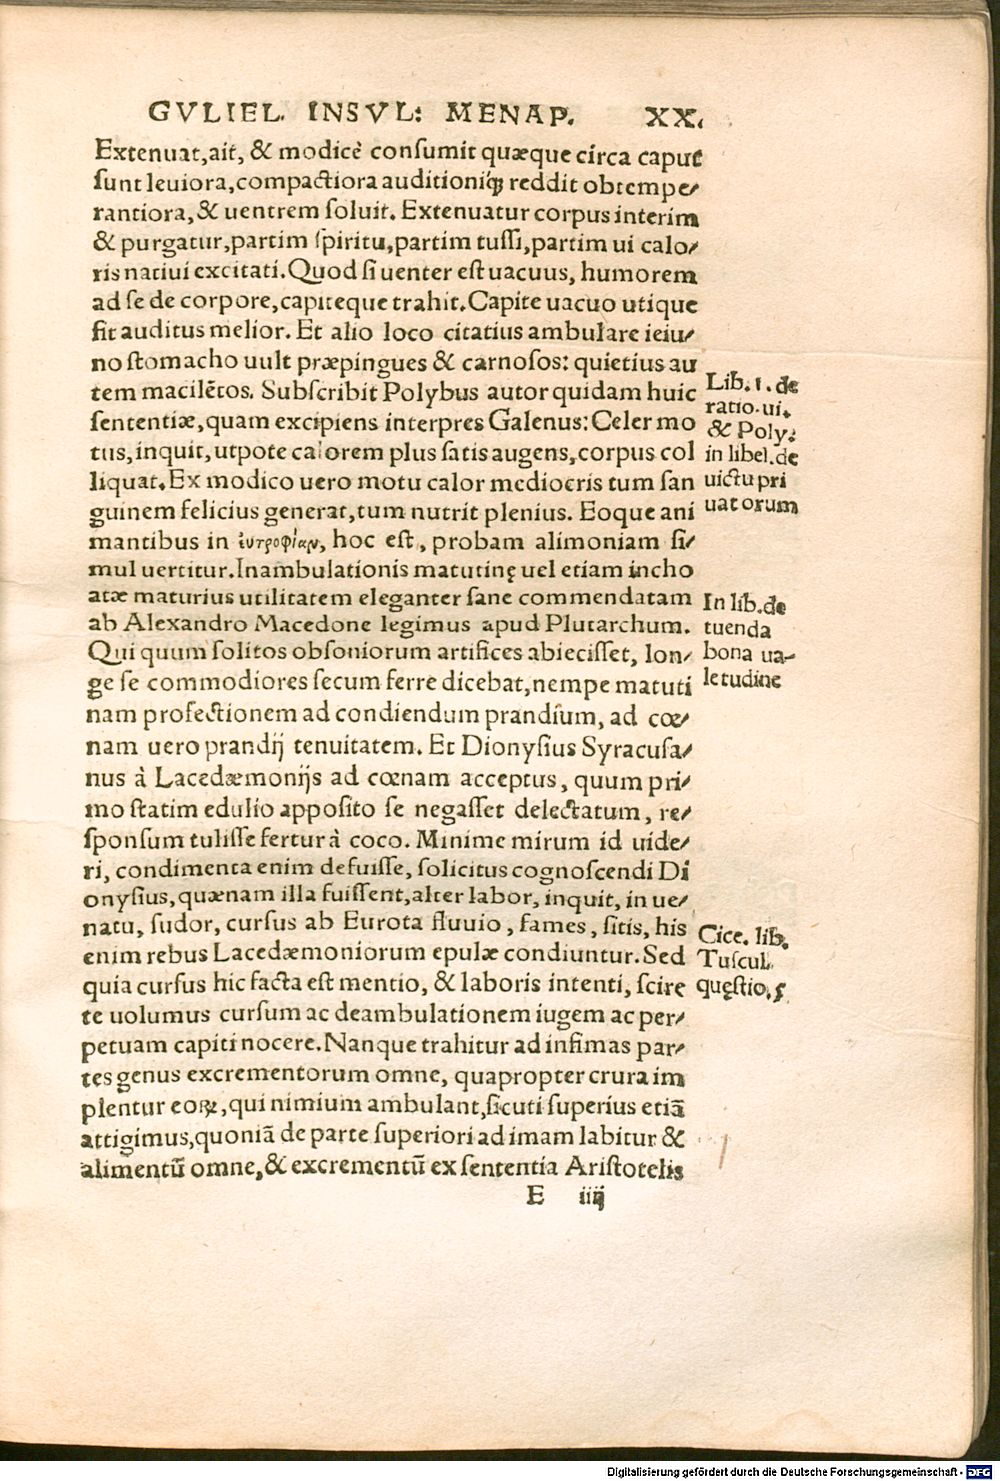 GVLIEL. INSVL: MENAP. XX.
Extenuat,ait, & modicè consumit quæque circa caput
sunt leuiora,compactiora auditioniq́ꝫ reddit obtempe-
rantiora,& uentrem soluit. Extenuatur corpus interim
& purgatur,partim spiritu,partim tussi,partim ui calo-
ris natiui excitati.Quod si uenter est uacuus, humorem
ad se de corpore,capiteque trahit.Capite uacuo utique
fit auditus melior. Et alio loco citatius ambulare ieiu-
no stomacho uult præpingues & carnosos: quietius au
tem macilẽtos. Subscribit Polybus autor quidam huic
sententiæ,quam excipiens interpres Galenus: Celer mo
tus,inquit,utpote calorem plus satis augens,corpus col
liquat.Ex modico uero motu calor mediocris tum san
guinem felicius generat,tum nutrit plenius. Eoque ani
mantibus in ἐυτροφίαν, hoc est, probam alimoniam si-
mul uertitur.Inambulationis matutinę uel etiam incho
atæ maturius utilitatem eleganter sane commendatam
ab Alexandro Macedone legimus apud Plutarchum.
Qui quum solitos obsoniorum artifices abiecisset, lon-
ge se commodiores secum ferre dicebat,nempe matuti
nam profectionem ad condiendum prandium, ad cœ-
nam uero prandij tenuitatem. Et Dionysius Syracusa-
nus à Lacedæmonijs ad cœnam acceptus, quum pri-
mo statim edulio apposito se negasset delectatum, re-
sponsum tulisse fertur à coco. Minime mirum id uide-
ri, condimenta enim defuisse, solicitus cognoscendi Di
onysius, quænam illa fuissent,alter labor, inquit, in ue-
natu, sudor, cursus ab Eurota fluuio, fames, sitis, his
enim rebus Lacedæmoniorum epulæ condiuntur. Sed
quia cursus hic facta est mentio, & laboris intenti, scire
te uolumus cursum ac deambulationem iugem ac per-
petuam capiti nocere. Nanque trahitur ad infimas par-
tes genus excrementorum omne, quapropter crura im
plentur eoꝝ,qui nimium ambulant,sicuti superius etiã
attigimus,quoniã de parte superiori ad imam labitur &
alimentũ omne,& excrementũ ex sententia Aristotelis
E iiij
Lib. 1. de
ratio. ui.
& Poly:
in libel. de
uictu pri
uatorum
In lib. de
tuenda
bona ua-
letudine
Cice. lib.
Tuscul.
quęstio. 5
Digitalisierung gefördert durch die Deutsche Forschungsgemeinschaft - DFG